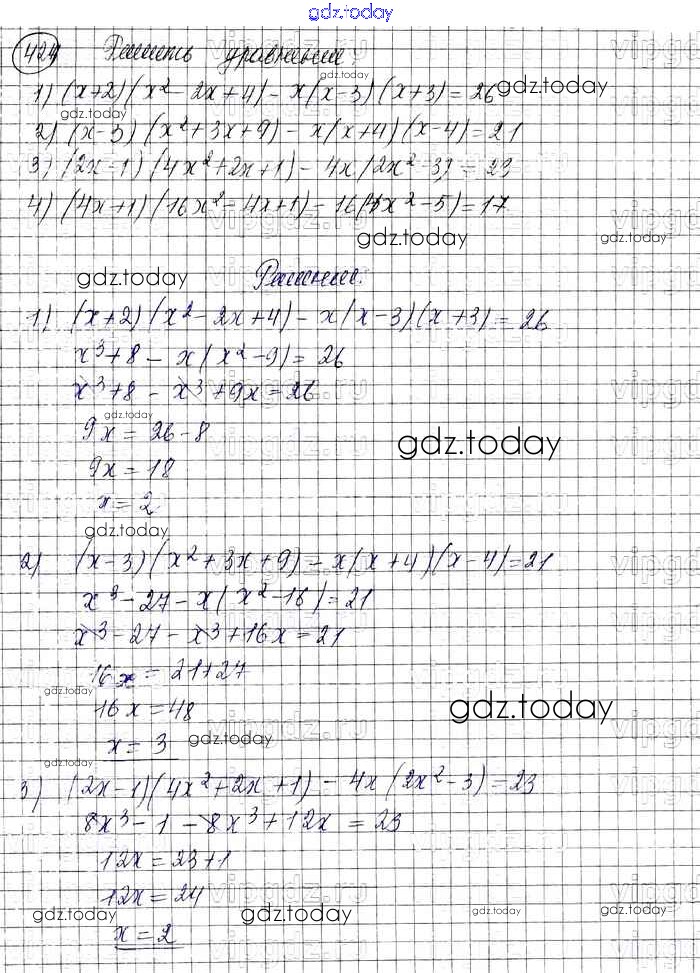 gdz.today
424 Решить уравнения:
1) (x+2)(x² - 2x+4) - x(x-3)(x+3) = 26 gdz.today
gdz.today
2) (x-3)(x²+3x+9) - x(x+4)(x-4) = 21
3) (2x-1)(4x²+2x+1) - 4x(2x²-3) = 23
4) (4x+1)(16x²-4x+1) - 16x(4x²-5) = 17
gdz.today gdz.today
gdz.today Решение:
1) (x+2)(x²-2x+4) - x(x-3)(x+3) = 26
x³+8 - x(x²-9) = 26
x³+8 - x³+9x = 26
gdz.today
9x = 26-8
gdz.today
9x = 18
x = 2
gdz.today
2) (x-3)(x²+3x+9) - x(x+4)(x-4) = 21
x³-27-x(x²-16) = 21
x³-27-x³+16x = 21
16x = 21+27
gdz.today
16x = 48
gdz.today
x = 3 gdz.today
3) (2x-1)(4x²+2x+1) - 4x(2x²-3) = 23
8x³-1-8x³+12x = 23
12x = 23+1
12x = 24
gdz.today gdz.today gdz.today gdz.today
x = 2